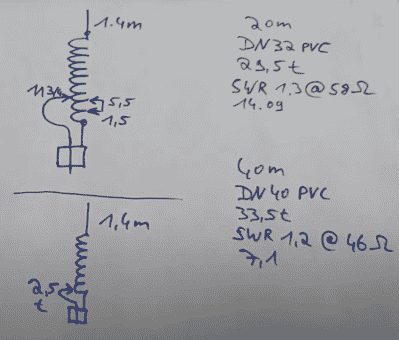 1.4m
5,5
1,5
20m
DN32 PVC
29,5t
SWR 1.3@58Ω
14.09
1,4m
2,5
t
40m
DN40 PVC
33,5t
SWR 1,2 @ 46Ω
7,1